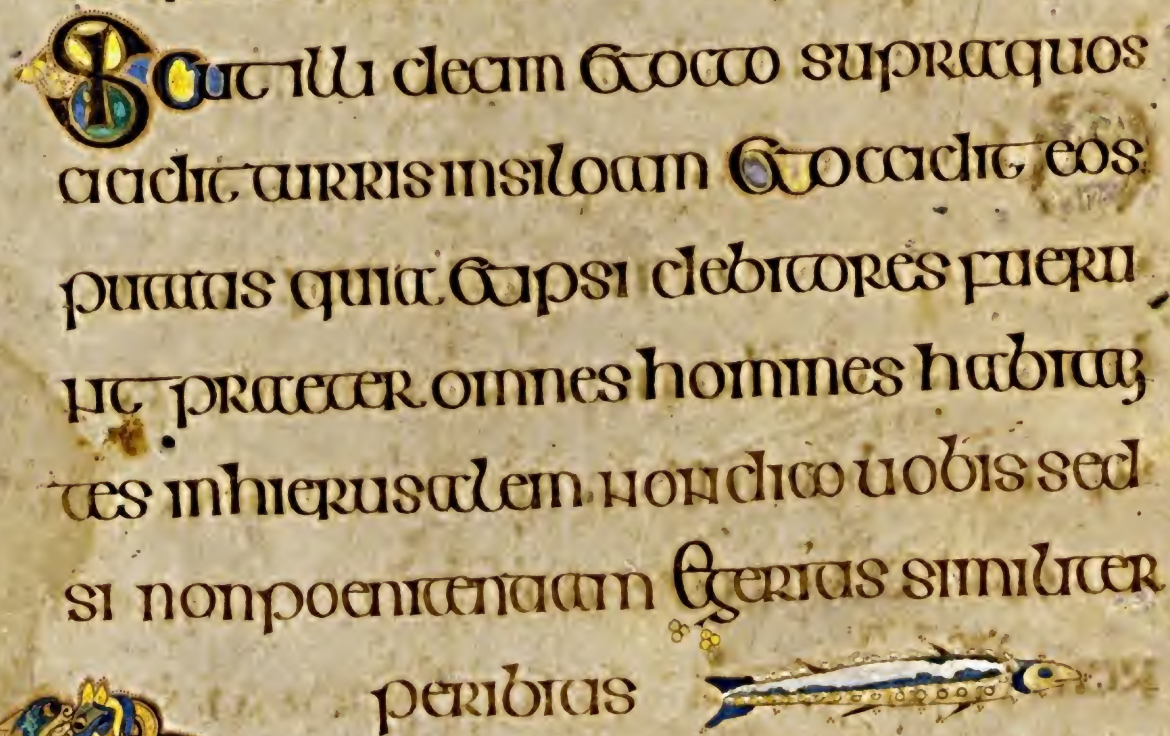 Sicut illi decim et octo supraquos
cicidit turris insiloam et occidit eos
putatis quia et ipsi debitores fueru
nt praeter omnes homines habitan
tes inhierusalem non dico uobis sed
si nonpoenitentiam egeritis similiter
peribitis